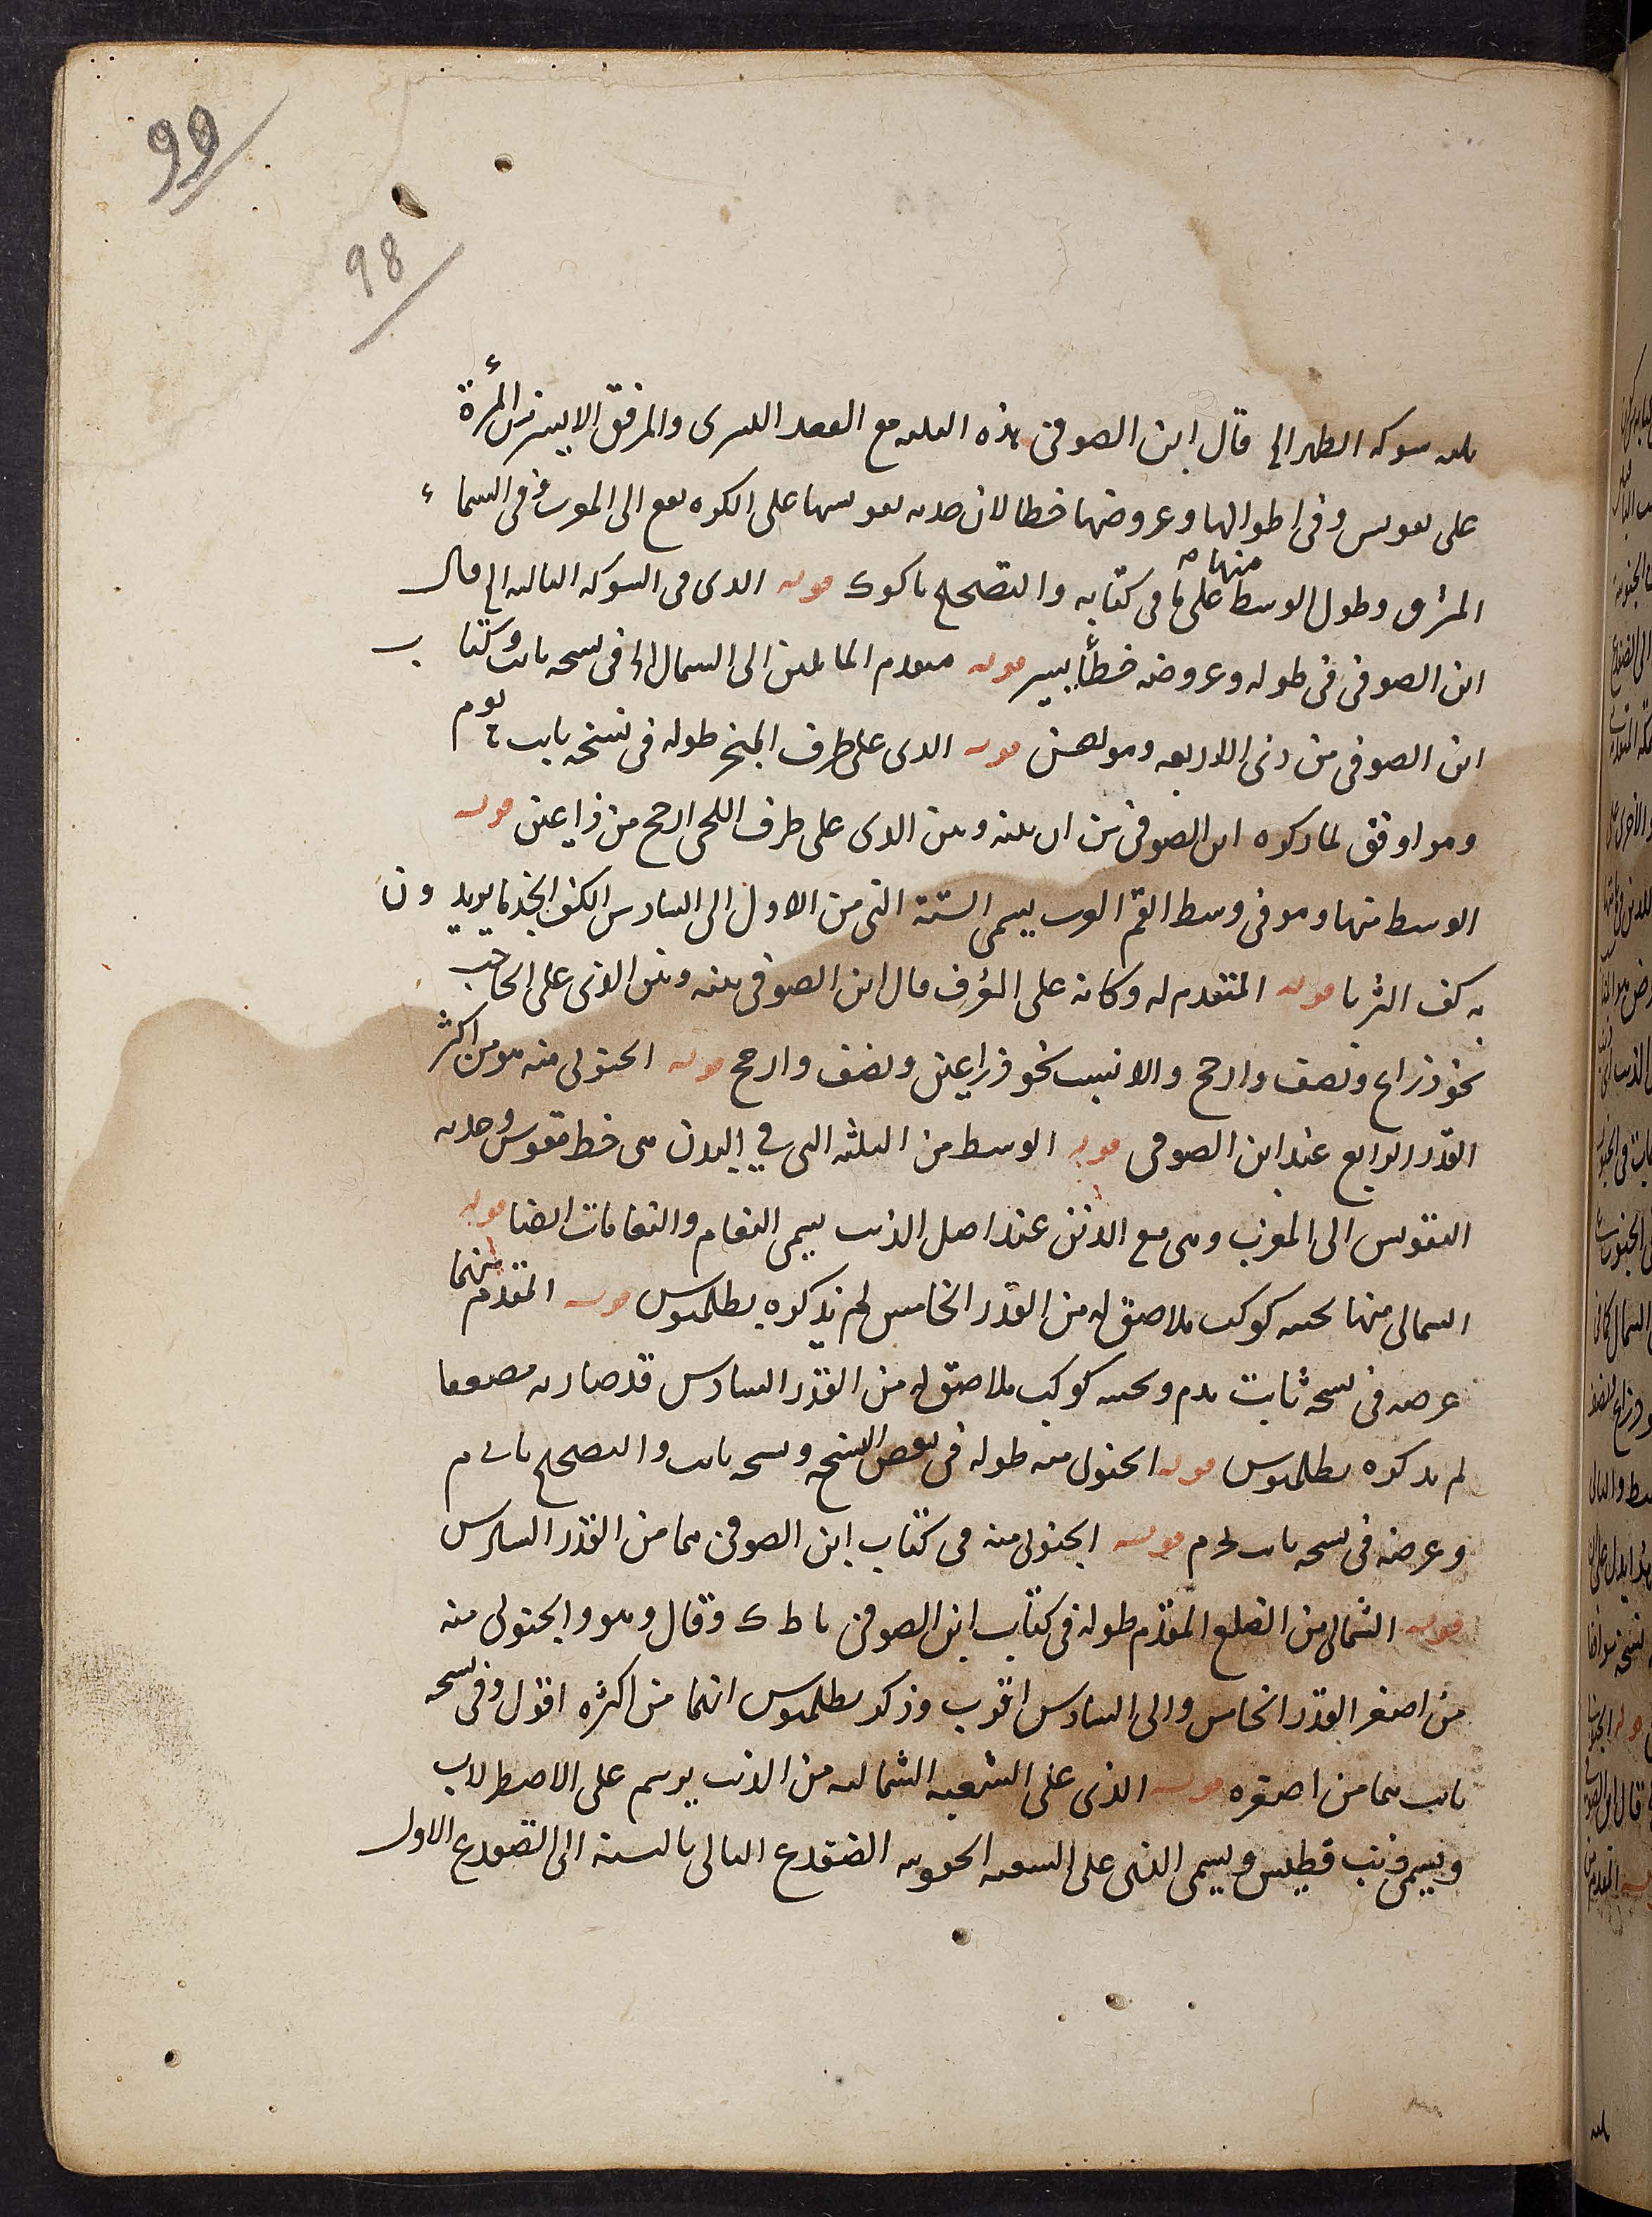 99
98
قال ابن الصوفى هذه مع العضد اليسرى والمرفق الايسر من المرأة
على تقويس وفى اطوالها وعروضها خطا لان على الكره يقع الى المغرب وفى السماء
المشرق وطول الوسط منها على ما فى كتابه والتصحيح ياكوك قوله الذى فى الشوكه التاليه الخ قال
ابن الصوفى فى طوله وعروضه خطأ يسير قوله متقدم المائلين الى الشمال فى نسخه ثابت وكتاب
ابن الصوفى من ذى الاربعه وهو قوله الذى على طرف المنخر طوله فى نسخه ثابت
وهو اوفق لما ذكره ابن الصوفى من ان بينه وبين الذى على طرف اللحى ارجح من ذراعين قوله
الوسط منها وهو فى وسط الفم يسمى الستة التى من الاول الى السادس الكف الجذما يريدون
به كف الثريا قوله المتقدم له وكانه على العرف قال ابن الصوفى بينه وبين الذى على الحاجب
نحو ذراع ونصف وارجح والانسب نحو ذراعين ونصف وارجح قوله الجنوبى منه هو من اكثر
القدر الرابع عند ابن الصوفى قوله الوسط من الثلثه التى فى البدن هى خط مقوس وحدبه
التقوس الى المغرب وهى مع الاثنين عند اصل الذنب يسمى النعام والنعامات ايضا قوله
الشمالى منها تحته كوكب ملاصق له من القدر الخامس لم يذكره بطلميوس قوله المتقدم منهما
عرضه فى نسخه ثابت يدم وتحته كوكب ملاصق له من القدر السادس قد صار به مضعفا
لم يذكره بطلميوس قوله الجنوبى منه طوله فى بعض النسخ ونسخه ثابت والتصحيح
وعرضه فى نسخه ثابت قوله الجنوبى منه فى كتاب ابن الصوفى هما من القدر السادس
قوله الشمالى من الضلع المقدم طوله فى كتاب ابن الصوفى يا ط ك وقال وهو والجنوبى منه
من اصغر القدر الخامس والى السادس اقرب وذكر بطلميوس انهما من اكثره اقول وفى نسخه
ثابت هما من اصغره قوله الذى على الشعبه الشماليه من الذنب يرسم على الاصطرلاب
ويسمى ذنب قطيس ويسمى الذى على الشعبه الجنوبيه الضفدع الثانى بالنسبه الى الضفدع الاول